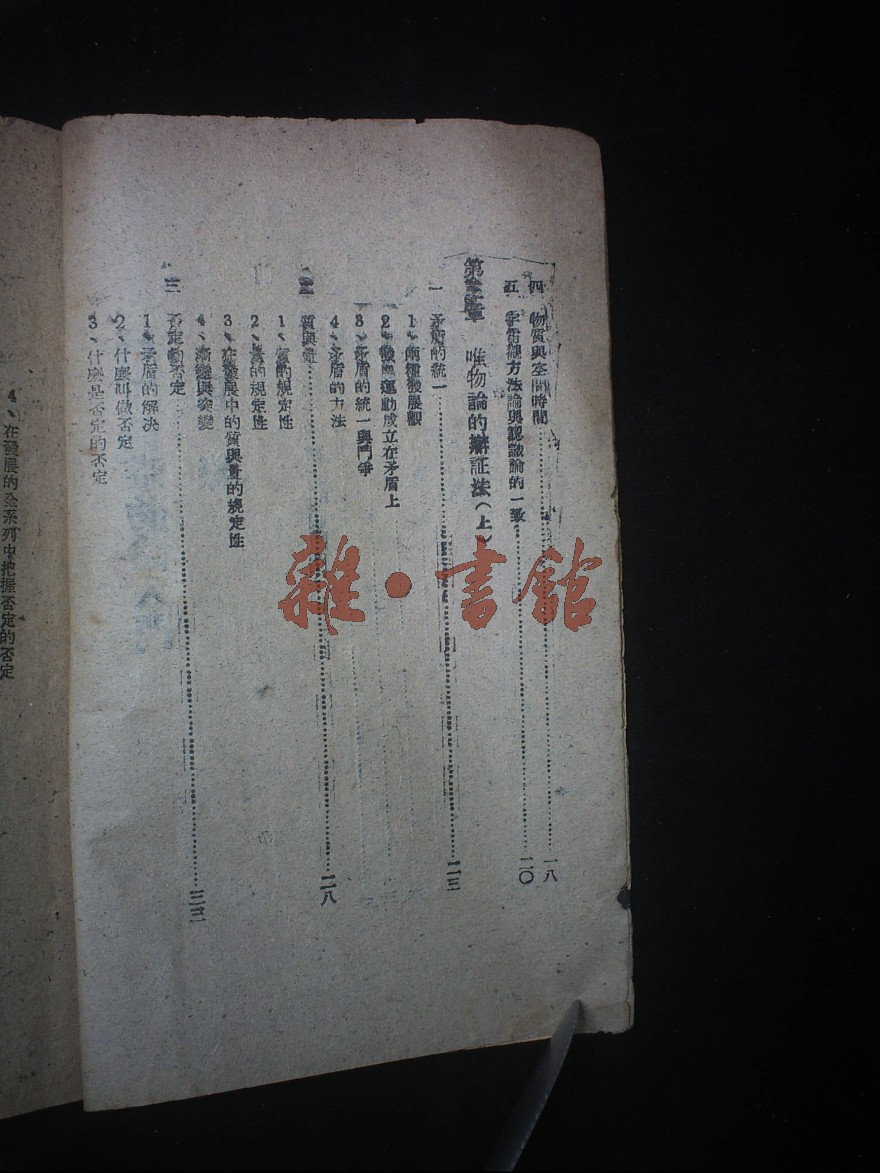 四 物質與空間時間……一八
五 宇宙觀方法論與認識論的一致……二〇
第 章 唯物論的辯証法(上)
一 矛盾的統一……二三
1、兩種發展觀
2、 運動成立在矛盾上
3、矛盾的統一與鬥爭
4、矛盾的方法
二 質與量……二八
1、質的規定性
2、量的規定性
3、在發展中的質與量的規定性
4、漸變與突變
三 否定的否定……三二
1、矛盾的解決
2、什麼叫做否定
3、什麼是否定的否定
4、在發展的全系列中把握否定的否定
雜·書館